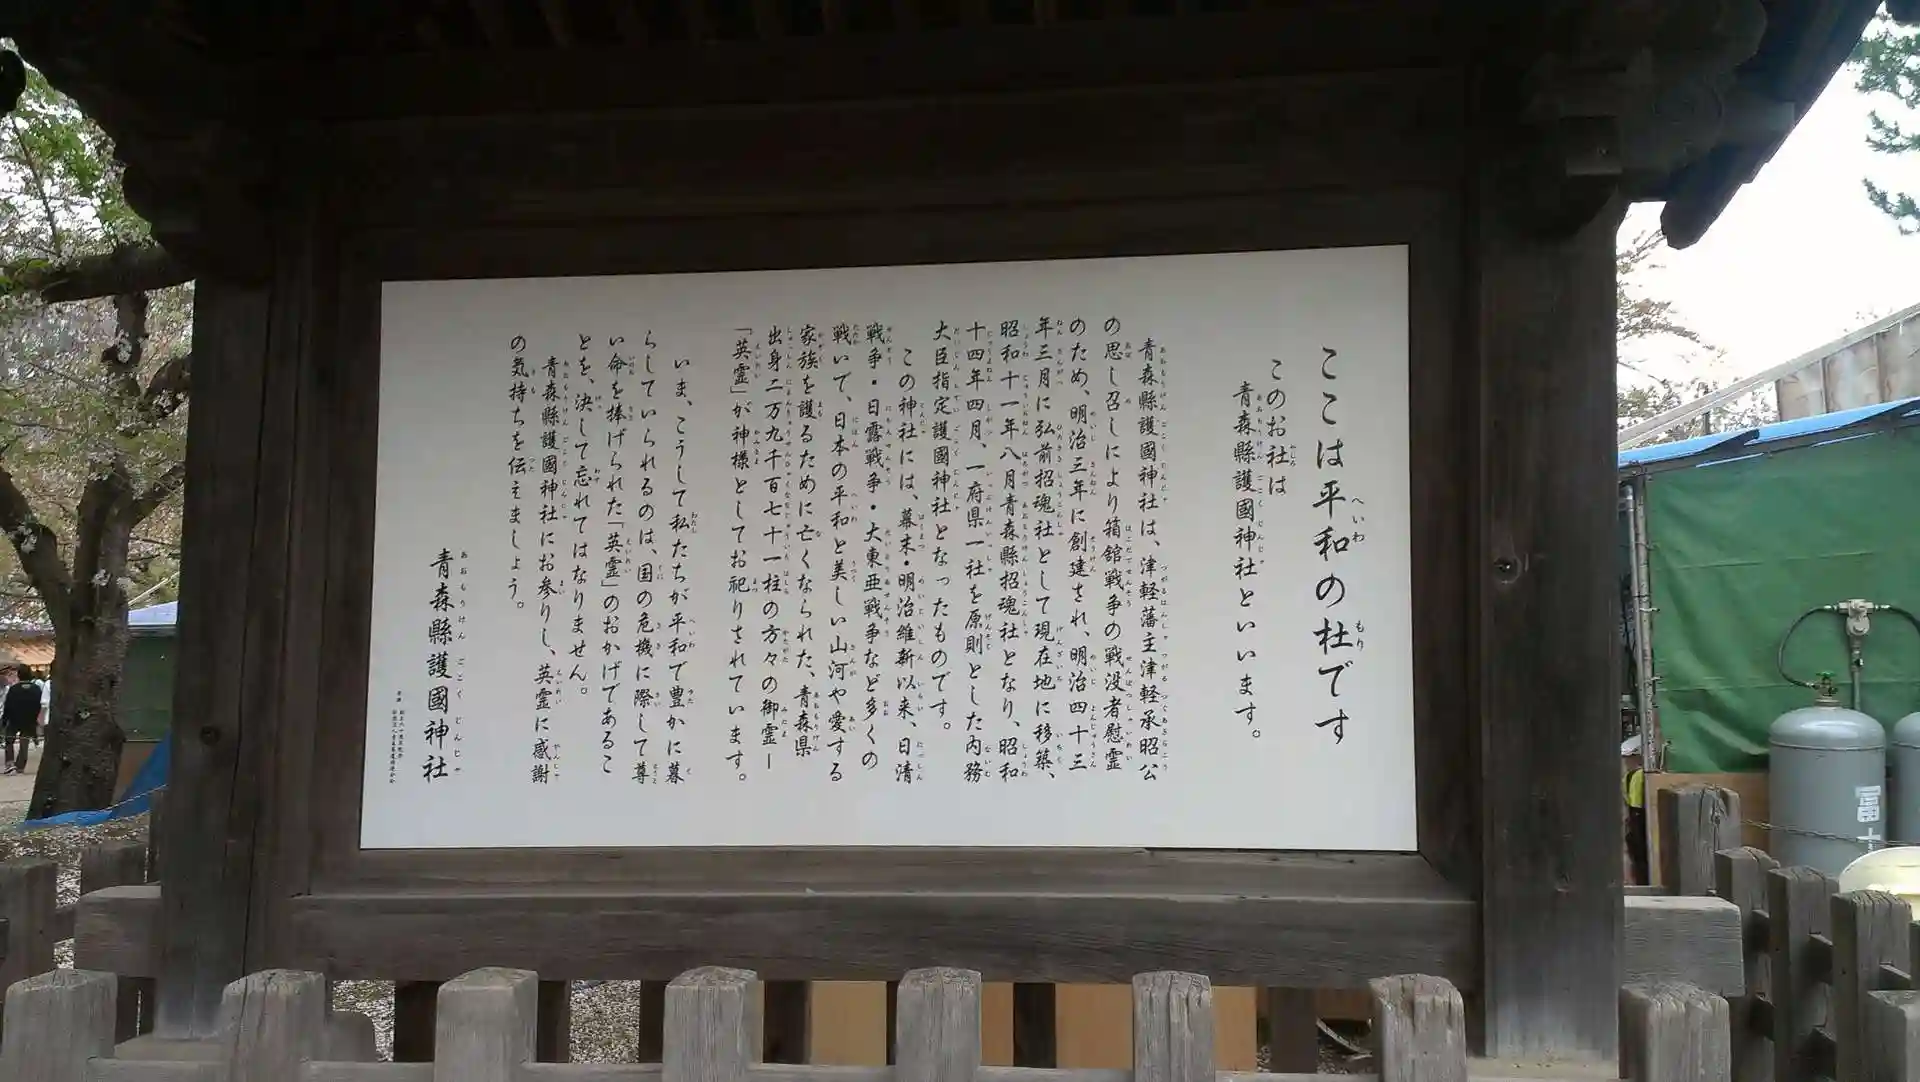 ここは平和の杜です
このお社は
青森縣護國神社といいます。
青森縣護國神社は、津軽藩主津軽承昭公
の思し召しにより箱舘戦争の戦没者慰霊
のため、明治三年に創建され、明治四十三
年三月に弘前招魂社として現在地に移築、
昭和十一年八月青森縣招魂社となり、昭和
十四年四月、一府県一社を原則とした内務
大臣指定護國神社となったものです。
この神社には、幕末・明治維新以来、日清
戦争・日露戦争・大東亜戦争など多くの
戦いで、日本の平和と美しい山河や愛する
家族を護るために亡くなられた、青森県
出身二万九千百七十一柱の方々の御霊ー
「英霊」が神様としてお祀りされています。
いま、こうして私たちが平和で豊かに暮
らしていられるのは、国の危機に際して尊
い命を捧げられた「英霊」のおかげであるこ
とを、決して忘れてはなりません。
青森縣護國神社にお参りし、英霊に感謝
の気持ちを伝えましょう。
青森縣護國神社